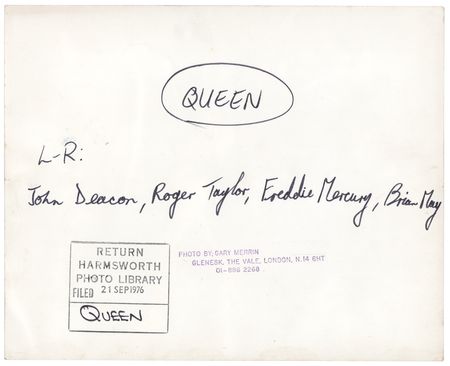 QUEEN
L-R:
John Deacon, Roger Taylor, Freddie Mercury, Brian May
RETURN
HARMSWORTH
PHOTO LIBRARY
FILED 21 SEP 1976
QUEEN
PHOTO BY; GARY MERRIN
GLENESK, THE VALE, LONDON, N.14 6HT
01-886 2260